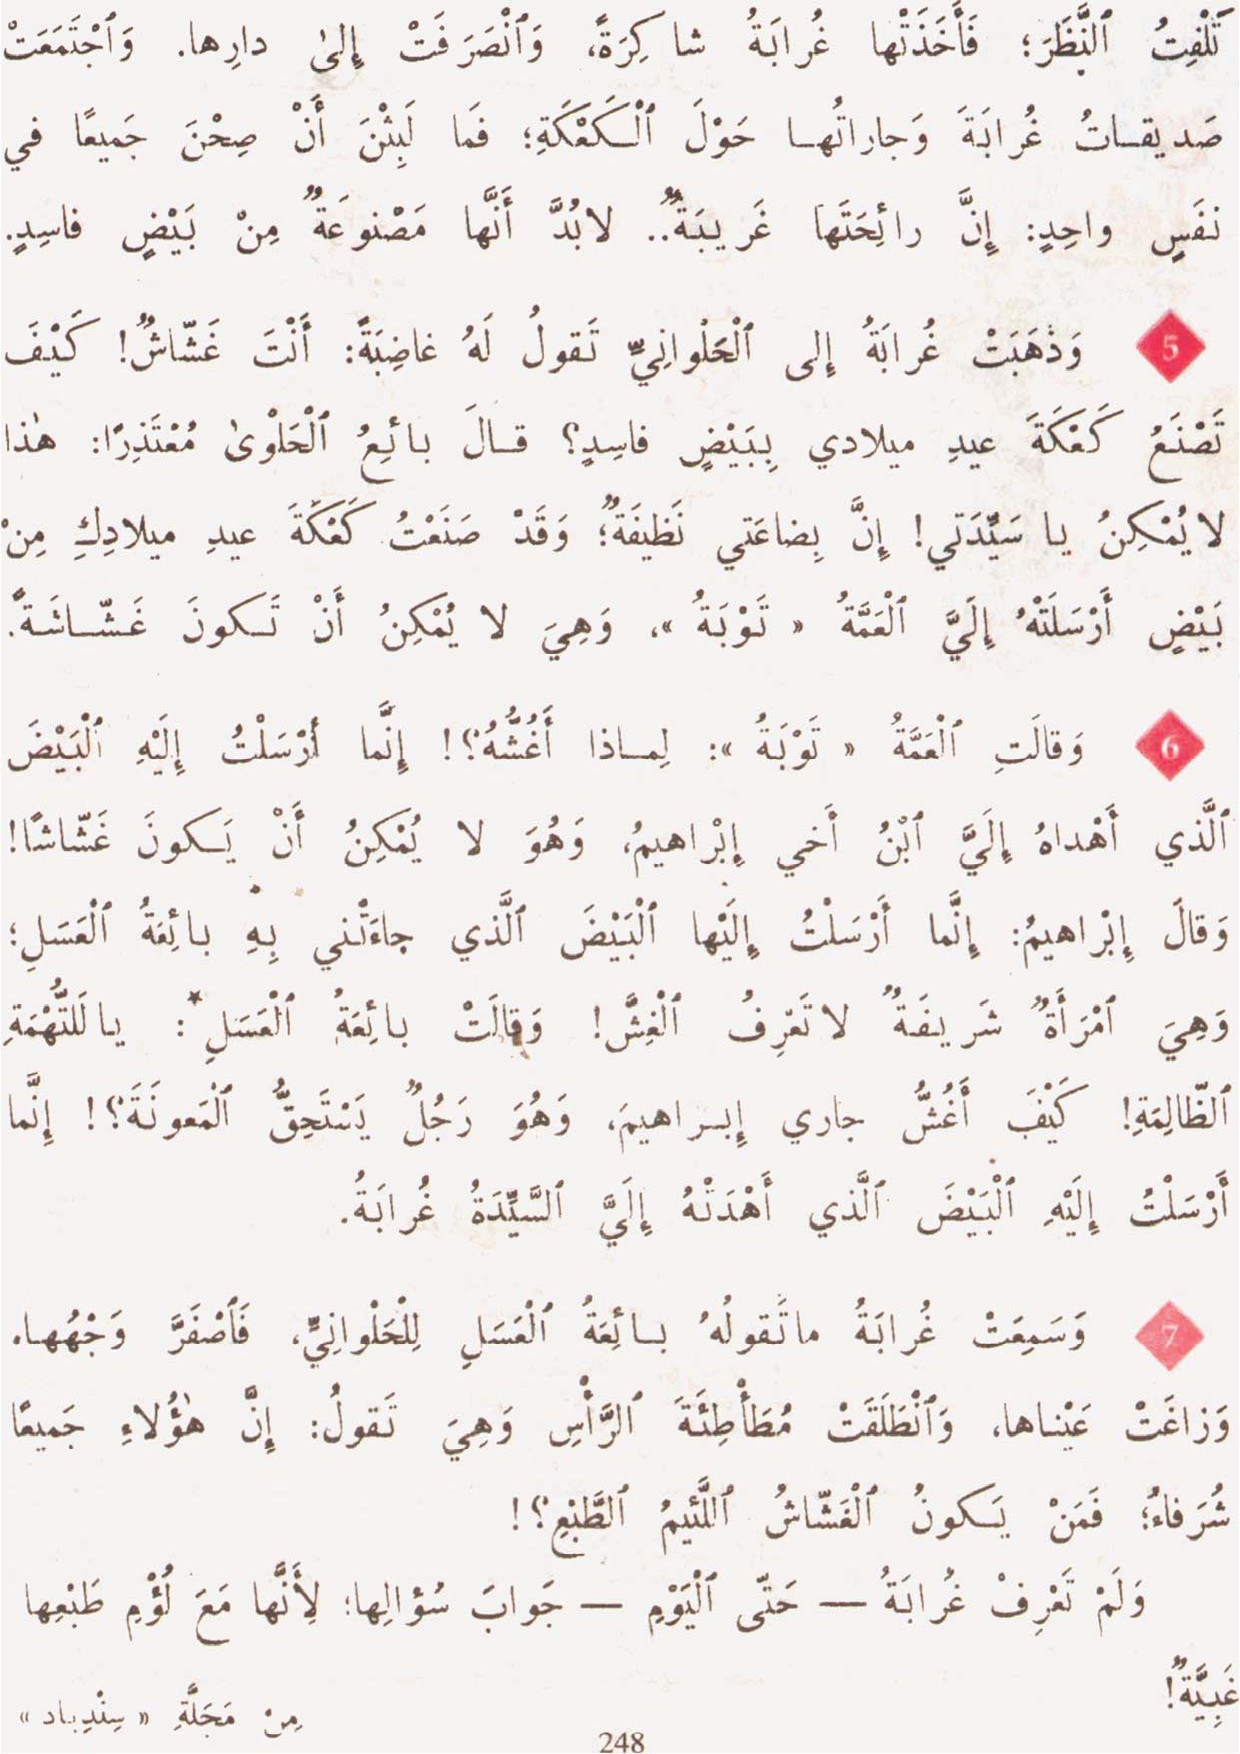 تَلْفِتُ ٱلنَّظَرَ؛ فَأَخَذَتْها غُرابَةُ شاكِرَةً، وَٱنْصَرَفَتْ إِلىٰ دارِها. وَٱجْتَمَعَتْ
صَديقاتُ غُرابَةَ وَجاراتُها حَوْلَ ٱلْكَعْكَةِ؛ فَما لَبِثْنَ أَنْ صِحْنَ جَميعًا في
نَفَسٍ واحِدٍ: إِنَّ رائِحَتَها غَريبَةٌ.. لابُدَّ أَنَّها مَصْنوعَةٌ مِنْ بَيْضٍ فاسِدٍ.
5 وَذَهَبَتْ غُرابَةُ إِلى ٱلْحَلْوانِيِّ تَقولُ لَهُ غاضِبَةً: أَنْتَ غَشّاشٌ! كَيْفَ
تَصْنَعُ كَعْكَةَ عيدِ ميلادي بِبَيْضٍ فاسِدٍ؟ قالَ بائِعُ ٱلْحَلْوىٰ مُعْتَذِرًا: هٰذا
لايُمْكِنُ يا سَيِّدَتي! إِنَّ بِضاعَتي نَظيفَةٌ؛ وَقَدْ صَنَعْتُ كَعْكَةَ عيدِ ميلادِكِ مِنْ
بَيْضٍ أَرْسَلَتْهُ إِلَيَّ ٱلْعَمَّةُ « تَوْبَةُ »، وَهِيَ لا يُمْكِنُ أَنْ تَكونَ غَشّاشَةً.
6 وَقالَتِ ٱلْعَمَّةُ « تَوْبَةُ »: لِماذا أَغُشُّهُ؟! إِنَّما أَرْسَلْتُ إِلَيْهِ ٱلْبَيْضَ
ٱلَّذي أَهْداهُ إِلَيَّ ٱبْنُ أَخي إِبْراهيمُ، وَهُوَ لا يُمْكِنُ أَنْ يَكونَ غَشّاشًا!
وَقالَ إِبْراهيمُ: إِنَّما أَرْسَلْتُ إِلَيْها ٱلْبَيْضَ ٱلَّذي جاءَتْني بِهِ بائِعَةُ ٱلْعَسَلِ؛
وَهِيَ ٱمْرَأَةٌ شَريفَةٌ لاتَعْرِفُ ٱلْغِشَّ! وَقالَتْ بائِعَةُ ٱلْعَسَلِ*: يالَلتُّهْمَةِ
ٱلظّالِمَةِ! كَيْفَ أَغُشُّ جاري إِبراهيمَ، وَهُوَ رَجُلٌ يَسْتَحِقُّ ٱلْمَعونَةَ؟! إِنَّما
أَرْسَلْتُ إِلَيْهِ ٱلْبَيْضَ ٱلَّذي أَهْدَتْهُ إِلَيَّ ٱلسَّيِّدَةُ غُرابَةُ.
7 وَسَمِعَتْ غُرابَةُ ماتَقولُهُ بائِعَةُ ٱلْعَسَلِ لِلْحَلْوانِيِّ، فَٱصْفَرَّ وَجْهُها.
وَزاغَتْ عَيْناها، وَٱنْطَلَقَتْ مُطَأْطِئَةَ ٱلرَّأْسِ وَهِيَ تَقولُ: إِنَّ هٰؤُلاءِ جَميعًا
شُرَفاءُ؛ فَمَنْ يَكونُ ٱلْغَشّاشُ ٱللَّئيمُ ٱلطَّبْعِ؟!
وَلَمْ تَعْرِفْ غُرابَةُ — حَتّى ٱلْيَوْمِ — جَوابَ سُؤالِها؛ لِأَنَّها مَعَ لُؤْمِ طَبْعِها
غَبِيَّةٌ!
مِنْ مَجَلَّةِ « سِنْدِباد »
248